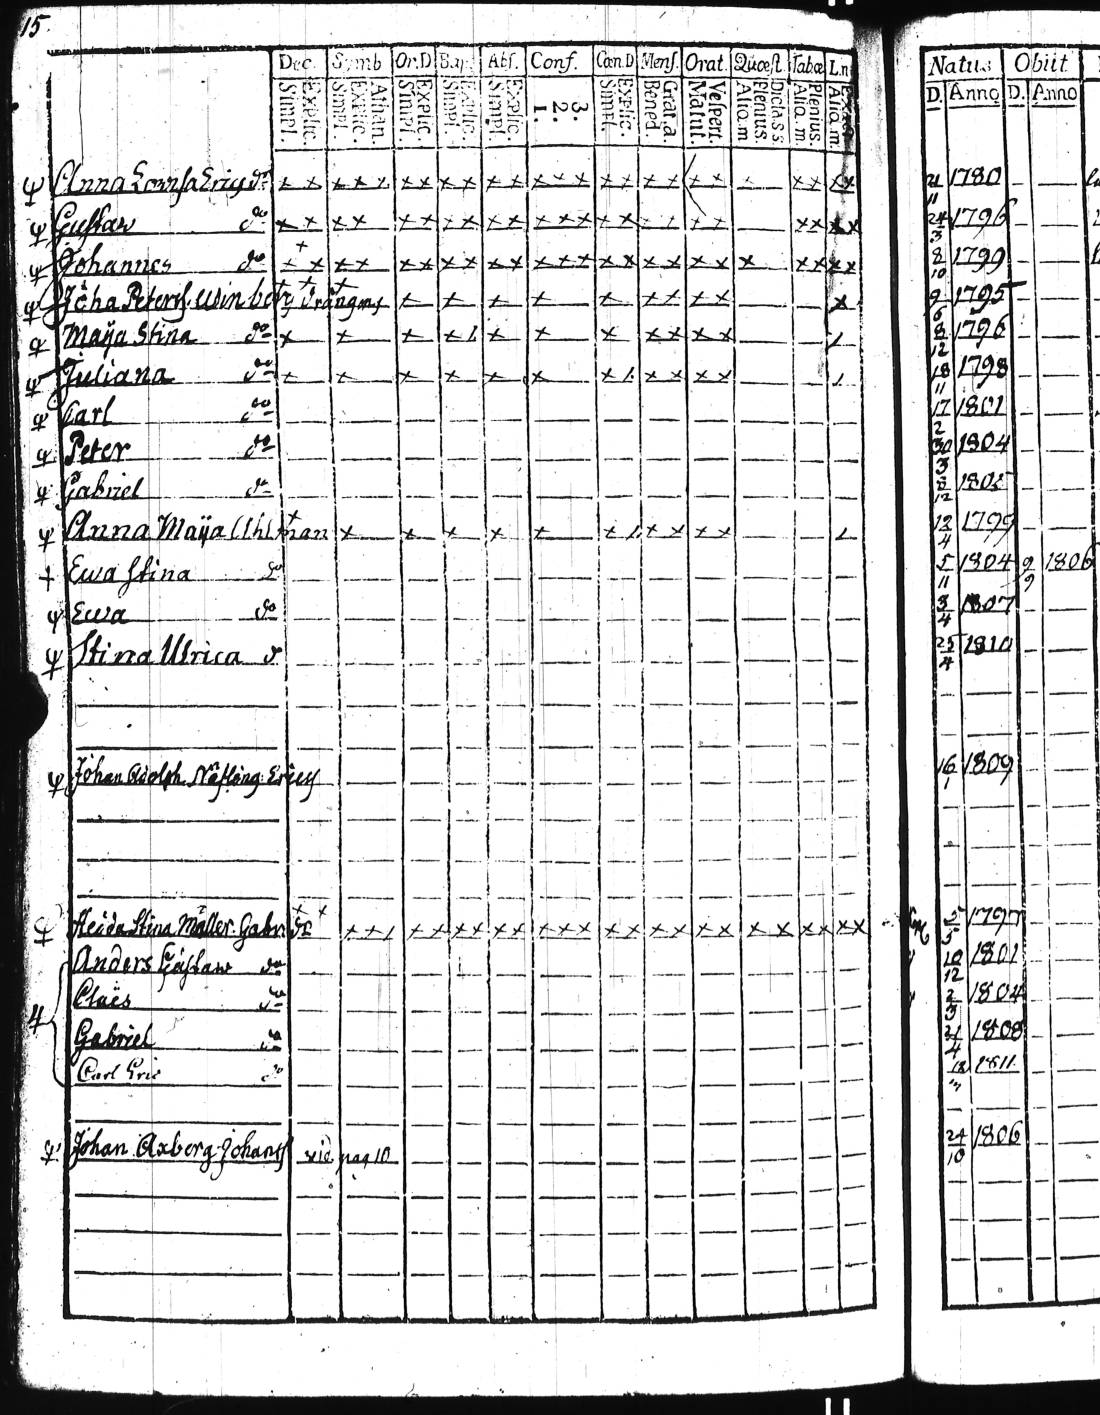 15
Dec. Symb Or.D Bap. Abs. Conf. Cœn.D Mens. Orat. Quæst. Tabæ L.n Natus Obiit
Explic. Simpl. Athan. Explic. Simpl. Explic. Simpl. Explic. Simpl. Explic. Simpl. 3. 2. 1. Explic. Simpl. Grat.a. Bened. Vespert. Matut. Dicta S.S. Plenius. Aliq.m Plenius. Aliq.m Aliq.m D. Anno D. Anno
Anna Lovisa 21/11 1780
Gustaw do 24/3 1796
Johannes do 8/10 1799
Joha Peters. Winberg 9/6 1795
Maija Stina do 8/12 1796
Juliana do 18/11 1798
Carl do 17/2 1801
Peter do 30/3 1804
Gabriel do 8/12 1805
Anna Maija 12/4 1799
Ewa Stina do 5/11 1804 9/9 1806
Ewa do 3/4 1807
Stina Ulrica d 25/4 1810
Johan Adolph 16/1 1809
Heida Stina Möller Gabr. 5/5 1797
Anders Gustaw do 10/12 1801
Claës do 2/3 1804
4 Gabriel do 21/4 1808
Carl Eric do 1811
Johan Axberg Johans vid pag 10 24/10 1806